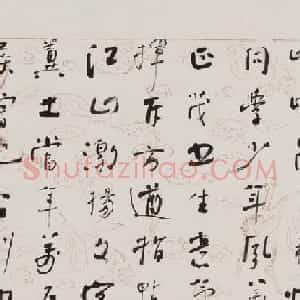 同學少年風
正茂书生意
揮斥方遒指點
江山激揚文字
糞土當年萬户
侯曾記否到
Shufaziliao.com